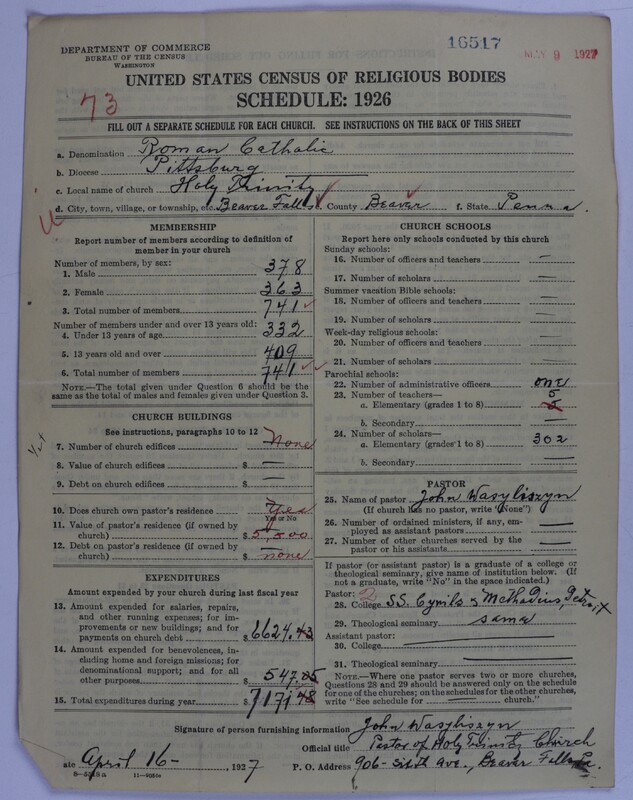 DEPARTMENT OF COMMERCE
BUREAU OF THE CENSUS
WASHINGTON
16517
MAY 9 1927
UNITED STATES CENSUS OF RELIGIOUS BODIES
SCHEDULE: 1926
73
FILL OUT A SEPARATE SCHEDULE FOR EACH CHURCH. SEE INSTRUCTIONS ON THE BACK OF THIS SHEET
a. Denomination Roman Catholic
b. Diocese Pittsburg
c. Local name of church Holy Trinity
d. City, town, village, or township, etc. Beaver Falls e. County Beaver f. State Penna.
MEMBERSHIP
Report number of members according to definition of member in your church
Number of members, by sex:
1. Male 378
2. Female 363
3. Total number of members 741
Number of members under and over 13 years old:
4. Under 13 years of age 332
5. 13 years old and over 409
6. Total number of members 741
NOTE.—The total given under Question 6 should be the
same as the total of males and females given under Question 3.
CHURCH BUILDINGS
See instructions, paragraphs 10 to 12
7. Number of church edifices None
8. Value of church edifices $ —
9. Debt on church edifices $ —
10. Does church own pastor's residence Yes
Yes or No
11. Value of pastor's residence (if owned by
church) $ 5,800
12. Debt on pastor's residence (if owned by
church) $ none
EXPENDITURES
Amount expended by your church during last fiscal year
13. Amount expended for salaries, repairs,
and other running expenses; for im-
provements or new buildings; and for
payments on church debt $ 6624.43
14. Amount expended for benevolences, in-
cluding home and foreign missions; for
denominational support; and for all
other purposes $ 547.05
15. Total expenditures during year $ 7171.48
CHURCH SCHOOLS
Report here only schools conducted by this church
Sunday schools:
16. Number of officers and teachers —
17. Number of scholars —
Summer vacation Bible schools:
18. Number of officers and teachers —
19. Number of scholars —
Week-day religious schools:
20. Number of officers and teachers —
21. Number of scholars —
Parochial schools:
22. Number of administrative officers one
23. Number of teachers— 5
a. Elementary (grades 1 to 8)
b. Secondary —
24. Number of scholars—
a. Elementary (grades 1 to 8) 302
b. Secondary —
PASTOR
25. Name of pastor John Wasyliszyn
(If church has no pastor, write "None")
26. Number of ordained ministers, if any, em-
ployed as assistant pastors —
27. Number of other churches served by the
pastor or his assistants —
If pastor (or assistant pastor) is a graduate of a college or
theological seminary, give name of institution below. (If
not a graduate, write "No" in the space indicated.)
Pastor: 2
28. College SS. Cyrils & Methodius, Detroit
29. Theological seminary same
Assistant pastor:
30. College —
31. Theological seminary —
NOTE.—Where one pastor serves two or more churches,
Questions 28 and 29 should be answered only on the schedule
for one of the churches; on the schedules for the other churches,
write "See schedule for — church."
Signature of person furnishing information John Wasyliszyn
Official title Pastor of Holy Trinity Church
ate April 16- , 1927 P. O. Address 906-sixth Ave., Beaver Falls Pa.